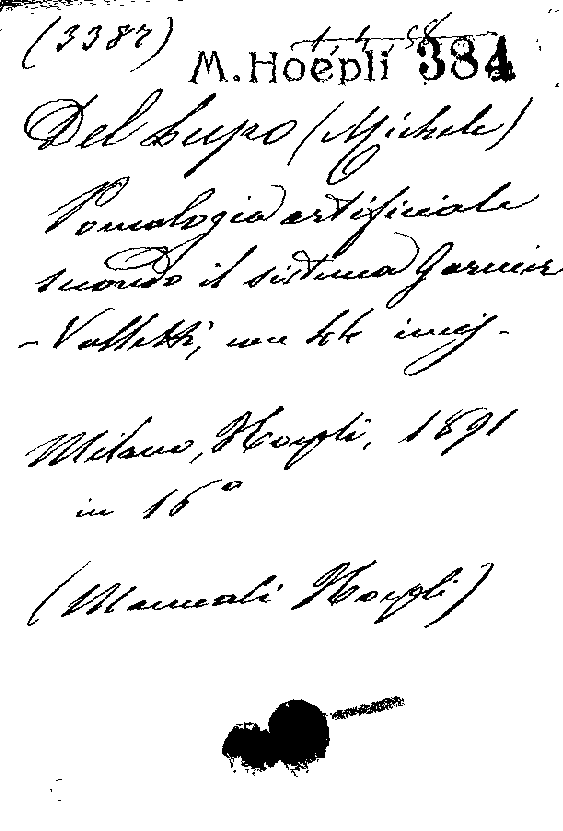 (3387)
M. Hoepli 384
Del Lupo (Michele)
Pomologia artificiale
secondo il sistema Garnier
- Valletti, con 44 incis -
Milano, Hoepli, 1891
in 16°
(Manuali Hoepli)